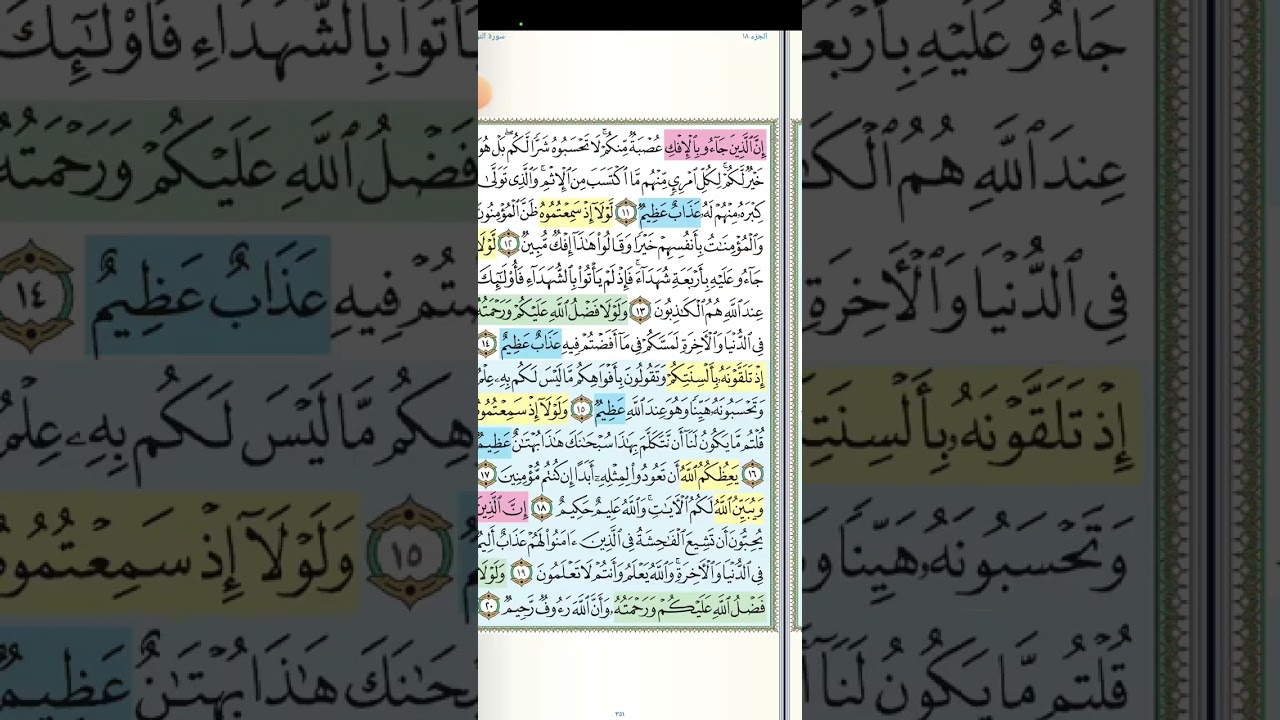 الجزء ١٨
سورة
إِنَّ ٱلَّذِينَ جَآءُو بِٱلْإِفْكِ عُصْبَةٌ مِّنكُمْ ۚ لَا تَحْسَبُوهُ شَرًّا لَّكُم ۖ بَلْ هُوَ
خَيْرٌ لَّكُمْ ۚ لِكُلِّ ٱمْرِئٍ مِّنْهُم مَّا ٱكْتَسَبَ مِنَ ٱلْإِثْمِ ۚ وَٱلَّذِى تَوَلَّىٰ
كِبْرَهُۥ مِنْهُمْ لَهُۥ عَذَابٌ عَظِيمٌ ١١ لَّوْلَآ إِذْ سَمِعْتُمُوهُ ظَنَّ ٱلْمُؤْمِنُونَ
وَٱلْمُؤْمِنَٰتُ بِأَنفُسِهِمْ خَيْرًا وَقَالُوا۟ هَٰذَآ إِفْكٌ مُّبِينٌ ١٢ لَّوْلَا
جَآءُو عَلَيْهِ بِأَرْبَعَةِ شُهَدَآءَ ۚ فَإِذْ لَمْ يَأْتُوا۟ بِٱلشُّهَدَآءِ فَأُو۟لَٰٓئِكَ
عِندَ ٱللَّهِ هُمُ ٱلْكَٰذِبُونَ ١٣ وَلَوْلَا فَضْلُ ٱللَّهِ عَلَيْكُمْ وَرَحْمَتُهُ
فِى ٱلدُّنْيَا وَٱلْءَاخِرَةِ لَمَسَّكُمْ فِى مَآ أَفَضْتُمْ فِيهِ عَذَابٌ عَظِيمٌ ١٤
إِذْ تَلَقَّوْنَهُۥ بِأَلْسِنَتِكُمْ وَتَقُولُونَ بِأَفْوَاهِكُم مَّا لَيْسَ لَكُم بِهِۦ عِلْمٌ
وَتَحْسَبُونَهُۥ هَيِّنًا وَهُوَ عِندَ ٱللَّهِ عَظِيمٌ ١٥ وَلَوْلَآ إِذْ سَمِعْتُمُوهُ
قُلْتُم مَّا يَكُونُ لَنَآ أَن نَّتَكَلَّمَ بِهَٰذَا سُبْحَٰنَكَ هَٰذَا بُهْتَٰنٌ عَظِيمٌ
١٦ يَعِظُكُمُ ٱللَّهُ أَن تَعُودُوا۟ لِمِثْلِهِۦٓ أَبَدًا إِن كُنتُم مُّؤْمِنِينَ ١٧
وَيُبَيِّنُ ٱللَّهُ لَكُمُ ٱلْءَايَٰتِ ۚ وَٱللَّهُ عَلِيمٌ حَكِيمٌ ١٨ إِنَّ ٱلَّذِينَ
يُحِبُّونَ أَن تَشِيعَ ٱلْفَٰحِشَةُ فِى ٱلَّذِينَ ءَامَنُوا۟ لَهُمْ عَذَابٌ أَلِيمٌ
فِى ٱلدُّنْيَا وَٱلْءَاخِرَةِ ۚ وَٱللَّهُ يَعْلَمُ وَأَنتُمْ لَا تَعْلَمُونَ ١٩ وَلَوْلَا
فَضْلُ ٱللَّهِ عَلَيْكُمْ وَرَحْمَتُهُۥ وَأَنَّ ٱللَّهَ رَءُوفٌ رَّحِيمٌ ٢٠
٣٥١